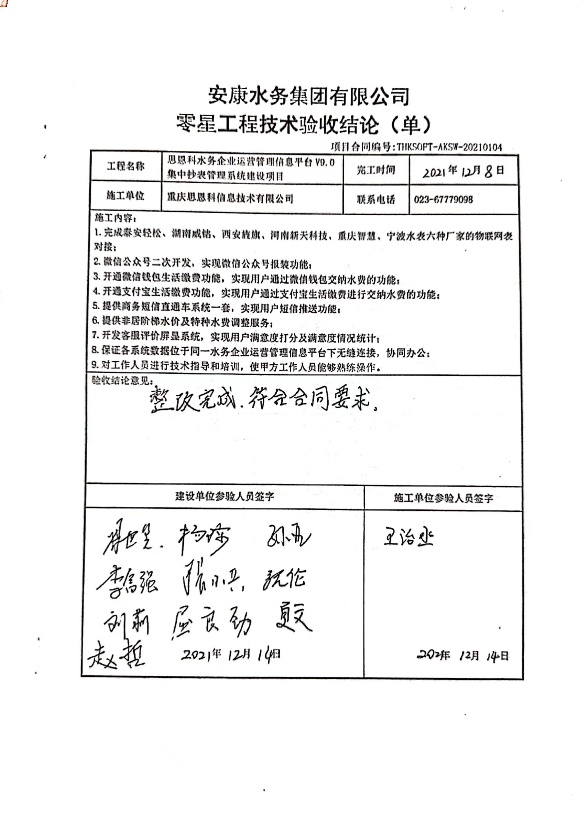 安康水务集团有限公司
零星工程技术验收结论（单）
项目合同编号:THKSOFT-AKSW-20210104
工程名称 思恩科水务企业运营管理信息平台V9.0 集中抄表管理系统建设项目 完工时间 2021年12月8日
施工单位 重庆思恩科信息技术有限公司 联系电话 023-67779098
施工内容:
1.完成泰安轻松、湖南威铭、西安旌旗、河南新天科技、重庆智慧、宁波水表六种厂家的物联网表
对接;
2.微信公众号二次开发，实现微信公众号报装功能;
3.开通微信钱包生活缴费功能，实现用户通过微信钱包交纳水费的功能;
4.开通支付宝生活缴费功能，实现用户通过支付宝生活缴费进行交纳水费的功能;
5.提供商务短信直通车系统一套，实现用户短信推送功能;
6.提供非居阶梯水价及特种水费调整服务;
7.开发客服评价屏显系统，实现用户满意度打分及满意度情况统计;
8.保证各系统数据位于同一水务企业运营管理信息平台下无缝连接，协同办公;
9.对工作人员进行技术指导和培训，使甲方工作人员能够熟练操作。
验收结论意见:
整改完成.符合合同要求。
建设单位参验人员签字 施工单位参验人员签字
李富强
刘莉
赵哲 2021年12月14日
王治
2021年 12月 14日